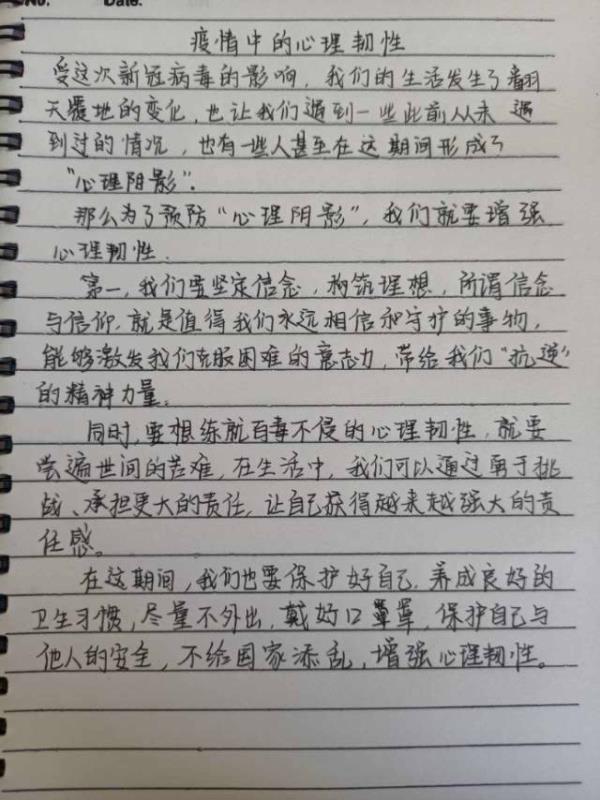 No. Date.
疫情中的心理韧性
受这次新冠病毒的影响,我们的生活发生了翻
天覆地的变化,也让我们遇到一些此前从未遇
到过的情况,也有一些人甚至在这期间形成了
“心理阴影”.
那么为了预防“心理阴影”,我们就要增强
心理韧性.
第一,我们要坚定信念,构筑理想,所谓信念
与信仰,就是值得我们永远相信和守护的事物,
能够激发我们克服困难的意志力,带给我们“抗逆”
的精神力量。
同时,要想练就百毒不侵的心理韧性,就要
尝遍世间的苦难,在生活中,我们可以通过勇于挑
战、承担更大的责任,让自己获得越来越强大的责
任感。
在这期间,我们也要保护好自己,养成良好的
卫生习惯,尽量不外出,戴好口罩罩,保护自己与
他人的安全,不给国家添乱,增强心理韧性。